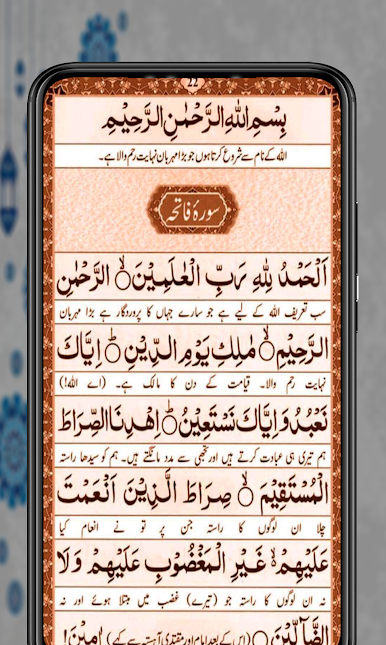 ۲۲
بِسْمِ اللهِ الرَّحْمٰنِ الرَّحِيْمِ
اللہ کے نام سے شروع کرتا ہوں جو بڑا مہربان نہایت رحم والا ہے۔
سورۂ فاتحہ
اَلْحَمْدُ لِلّٰهِ رَبِّ الْعٰلَمِيْنَ ۙ الرَّحْمٰنِ
سب تعریف اللہ کے لیے ہے جو سارے جہاں کا پروردگار ہے بڑا مہربان
الرَّحِيْمِ ۙ مٰلِكِ يَوْمِ الدِّيْنِ ؕ اِيَّاكَ
نہایت رحم والا۔ قیامت کے دن کا مالک ہے۔ (اے اللہ!)
نَعْبُدُ وَاِيَّاكَ نَسْتَعِيْنُ ؕ اِهْدِنَا الصِّرَاطَ
ہم تیری ہی عبادت کرتے ہیں اور تجھی سے مدد مانگتے ہیں۔ ہم کو سیدھا راستہ
الْمُسْتَقِيْمَ ۙ صِرَاطَ الَّذِيْنَ اَنْعَمْتَ
چلا ان لوگوں کا راستہ جن پر تو نے انعام کیا
عَلَيْهِمْ ۙ غَيْرِ الْمَغْضُوْبِ عَلَيْهِمْ وَلَا
نہ ان لوگوں کا راستہ جو (تیرے) غضب میں مبتلا ہوئے اور نہ
الضَّآلِّيْنَ (اس کے بعد امام اور مقتدی آہستہ سے کہے) اٰمِيْنَ!